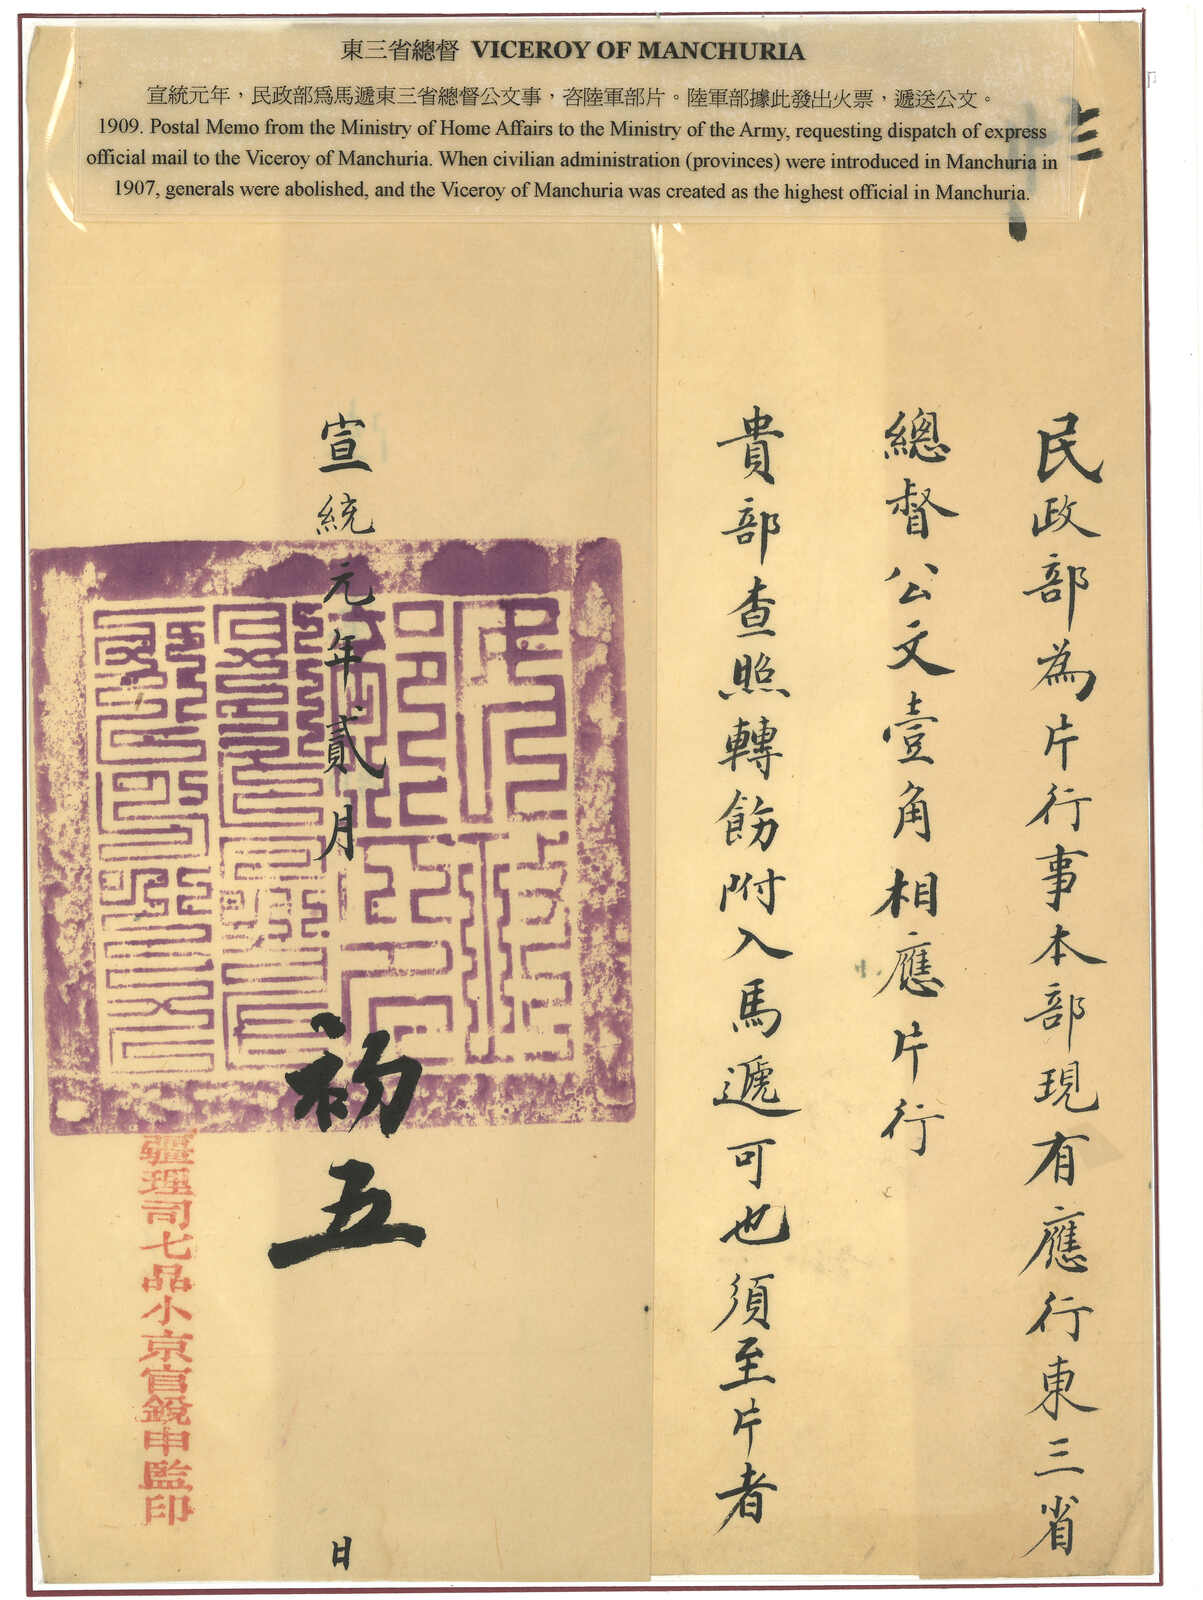 東三省總督 VICEROY OF MANCHURIA
宣統元年，民政部爲馬遞東三省總督公文事，咨陸軍部片。陸軍部據此發出火票，遞送公文。
1909. Postal Memo from the Ministry of Home Affairs to the Ministry of the Army, requesting dispatch of express
official mail to the Viceroy of Manchuria. When civilian administration (provinces) were introduced in Manchuria in
1907, generals were abolished, and the Viceroy of Manchuria was created as the highest official in Manchuria.
民政部為片行事本部現有應行東三省
總督公文壹角相應片行
貴部查照轉飭附入馬遞可也須至片者
宣統元年貳月初五日
疆理司七品小京官銳申監印